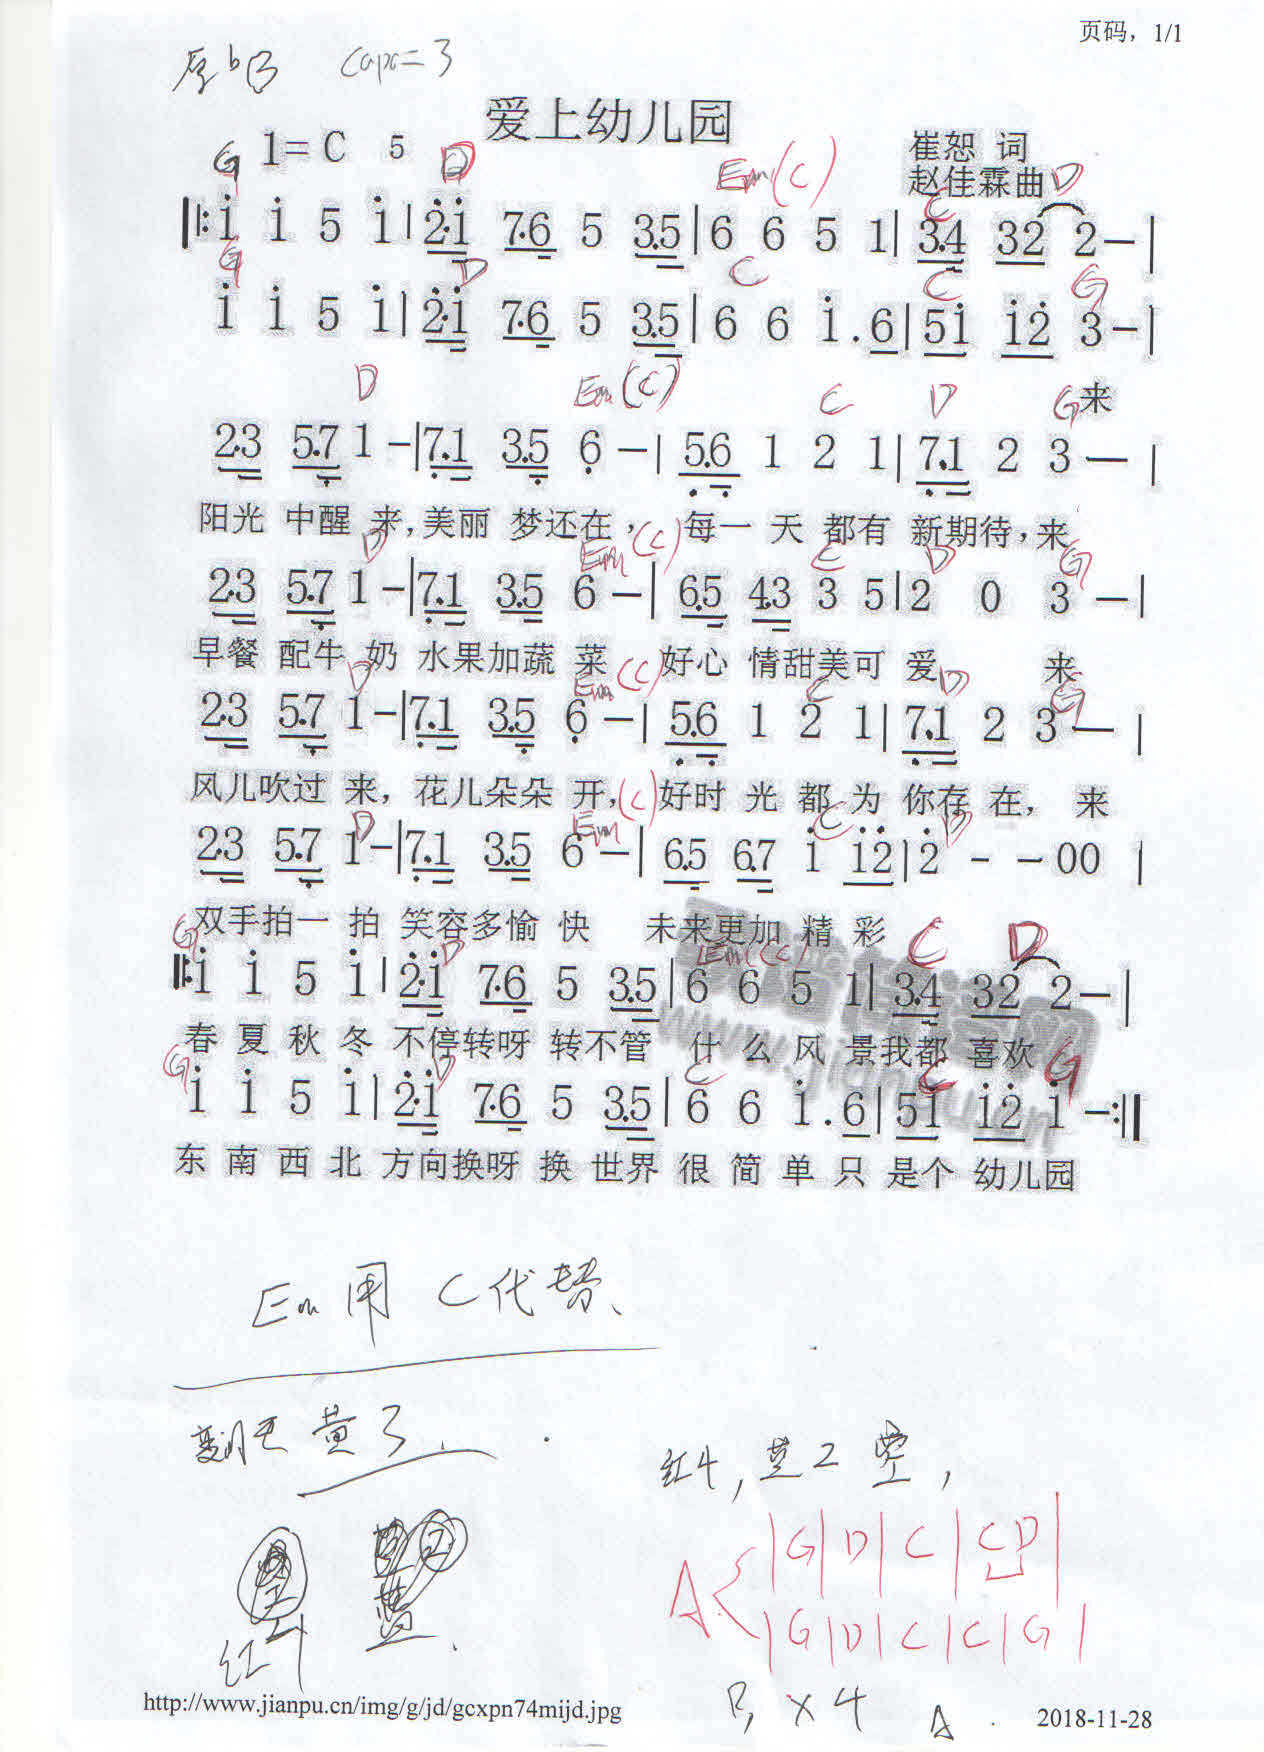 页码，1/1
原b3 capo=3
爱上幼儿园
1=C 5
崔恕 词
赵佳霖曲
G D Em(C) C D
‖:i i 5 i|2·i 7·6 5 3.5|6 6 5 1|3.4 32 2—|
G D C C G
i i 5 i|2·i 7·6 5 3.5|6 6 i.6|5i i2 3—|
D Em(C) C D G来
2·3 5·7 1 —|7.1 3.5 6 —|5.6 1 2 1|7.1 2 3—|
阳光 中醒 来，美丽 梦还在， 每一 天 都有 新期待，来
D Em(C) C D G
2·3 5·7 1 —|7.1 3.5 6 —|6.5 4.3 3 5|2 0 3 —|
早餐 配牛 奶 水果加蔬 菜 好心 情甜美可 爱 来
D Em(C) C D G
2·3 5·7 1—|7.1 3.5 6 —|5.6 1 2 1|7.1 2 3—|
风儿吹过 来，花儿朵朵 开，好时 光 都 为 你存 在， 来
D Em(C) C D
2·3 5·7 1—|7.1 3.5 6 —|6.5 6.7 i i2|2 - - 00 |
双手拍一 拍 笑容多愉 快 未来更加 精 彩
G D Em(C) C D
‖:i i 5 i|2·i 7·6 5 3.5|6 6 5 1|3.4 32 2—|
春 夏 秋 冬 不停转呀 转不管 什 么 风 景我都 喜欢
G D C C G
i i 5 i|2·i 7·6 5 3.5|6 6 i.6|5i i2 i —:‖
东 南 西 北 方向换呀 换 世界 很 简 单 只 是个 幼儿园
Em用 C代替、
黄3
红4，
|G|D|C|CD|
A{
|G|D|C|C|G|
红
蓝
×4 A
http://www.jianpu.cn/img/g/jd/gcxpn74mijd.jpg
2018-11-28